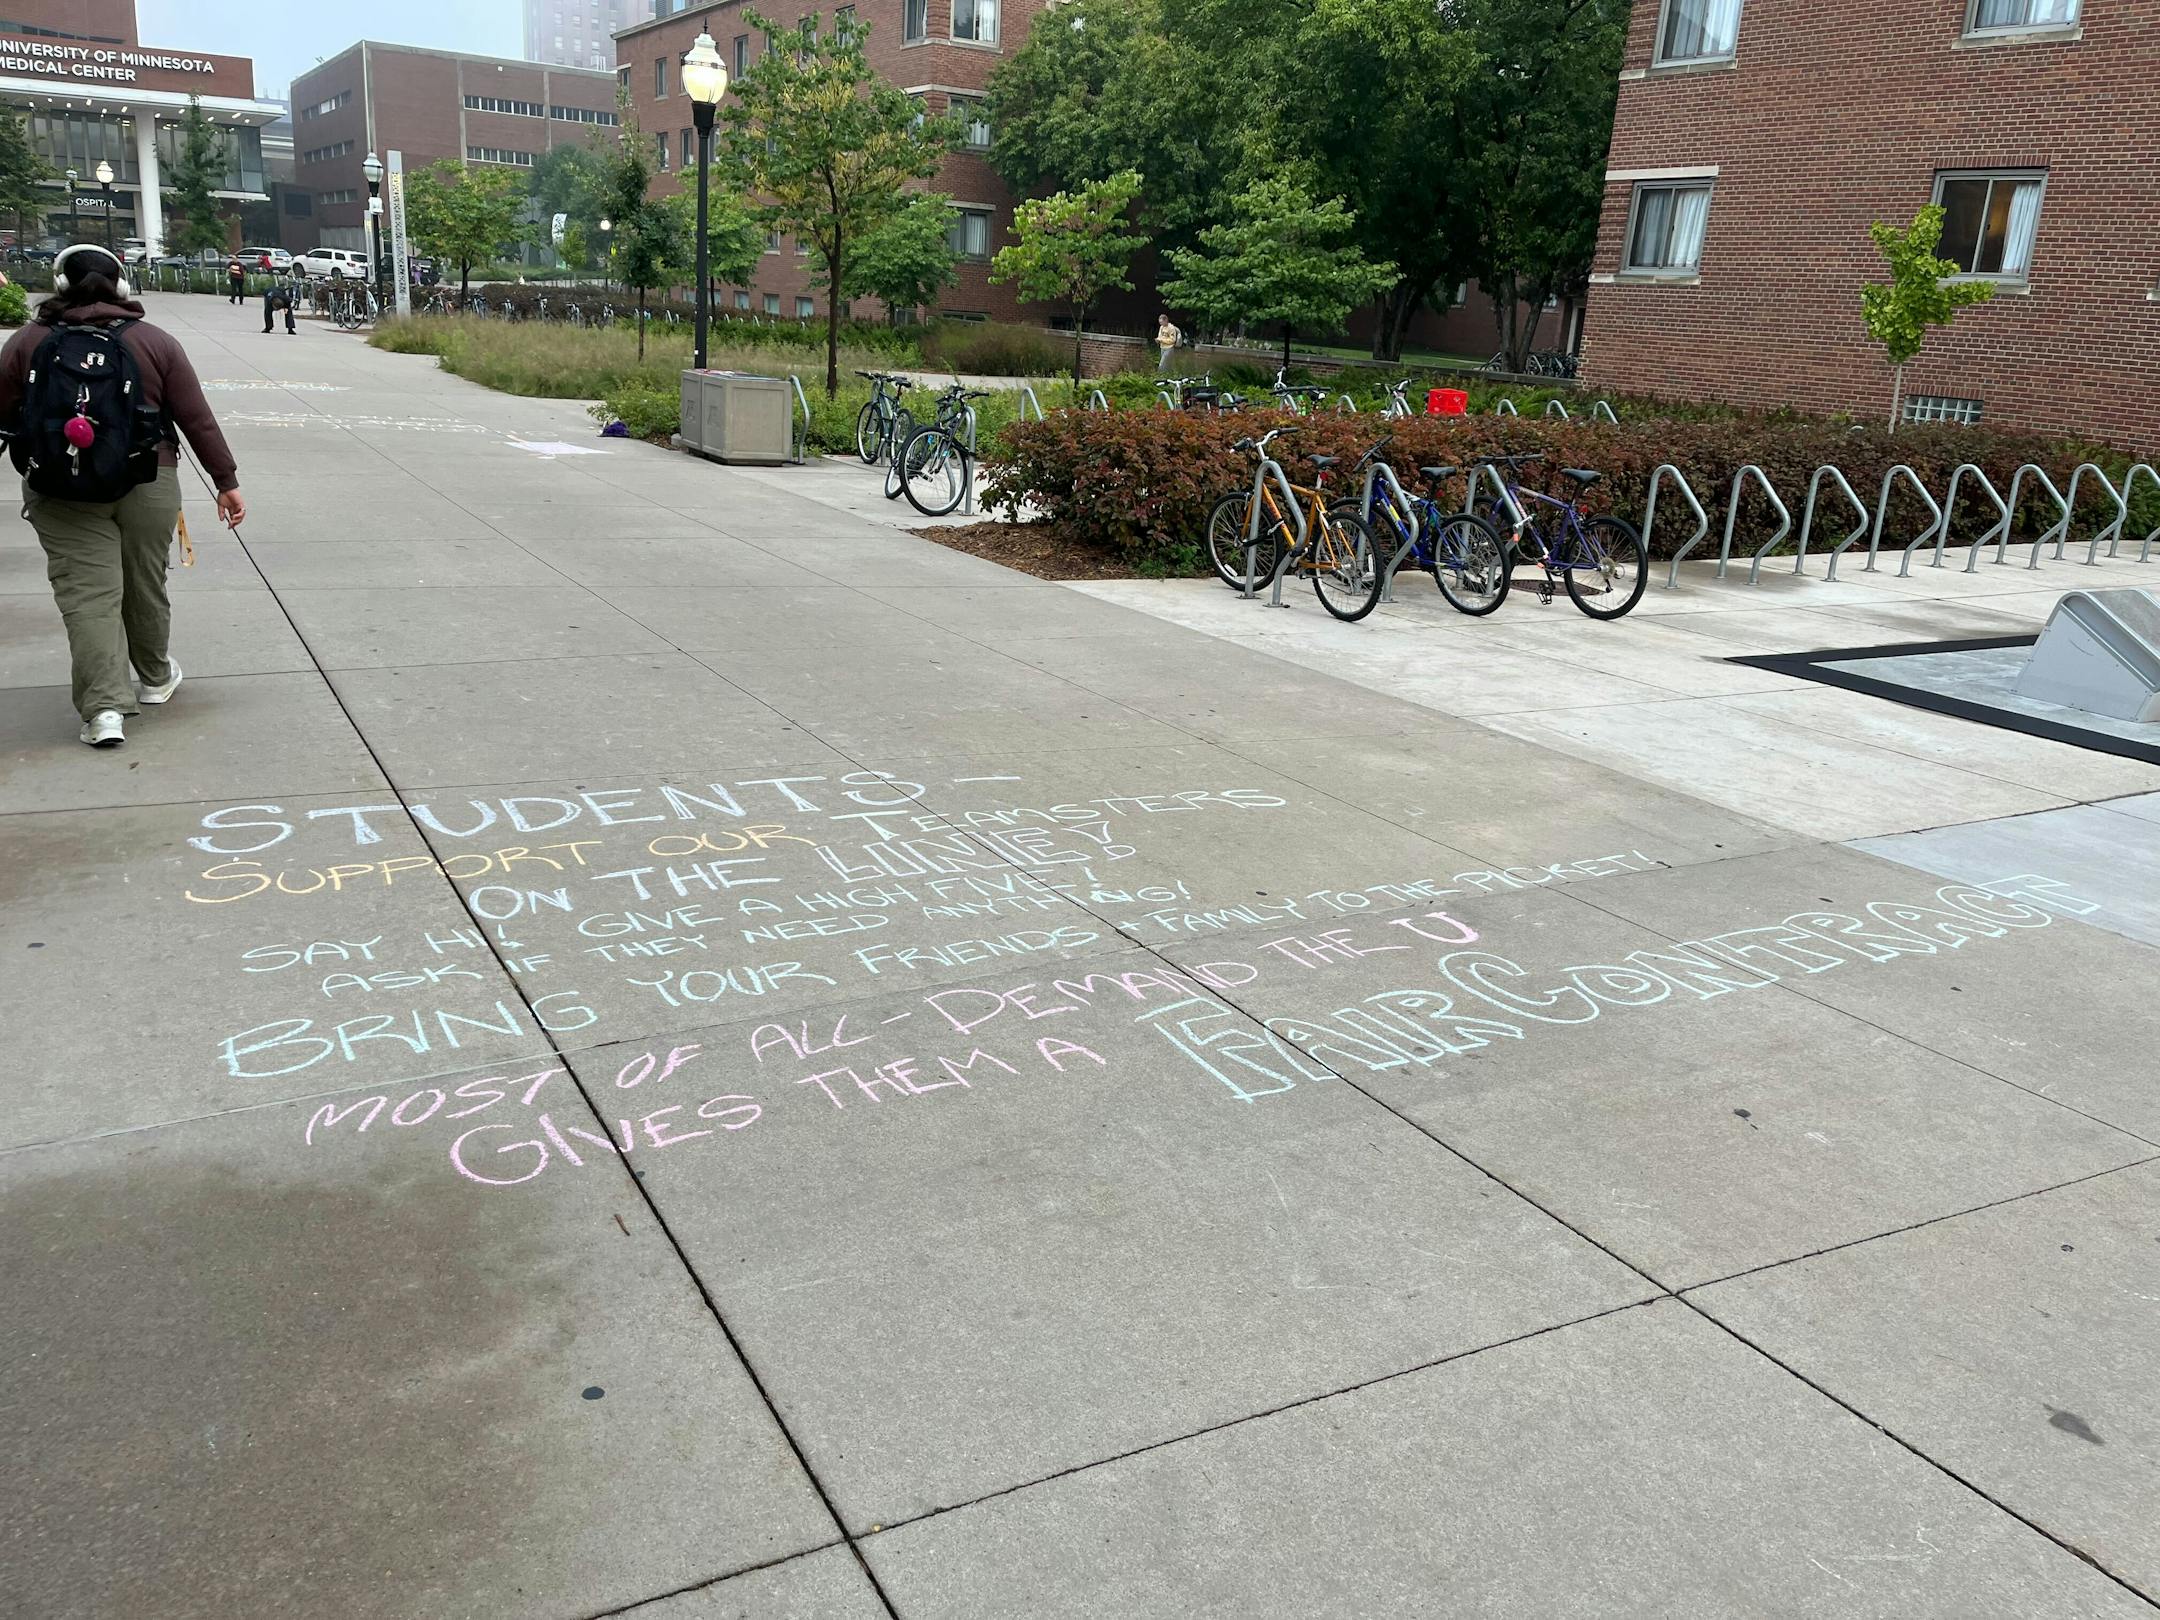 UNIVERSITY OF MINNESOTA
MEDICAL CENTER
OSPITAL
STUDENTS –
SUPPORT OUR TEAMSTERS
ON THE LINE!
SAY HI! GIVE A HIGH FIVE!
ASK IF THEY NEED ANYTHING!
BRING YOUR FRIENDS + FAMILY TO THE PICKET!
MOST OF ALL – DEMAND THE U
GIVES THEM A FAIR CONTRACT